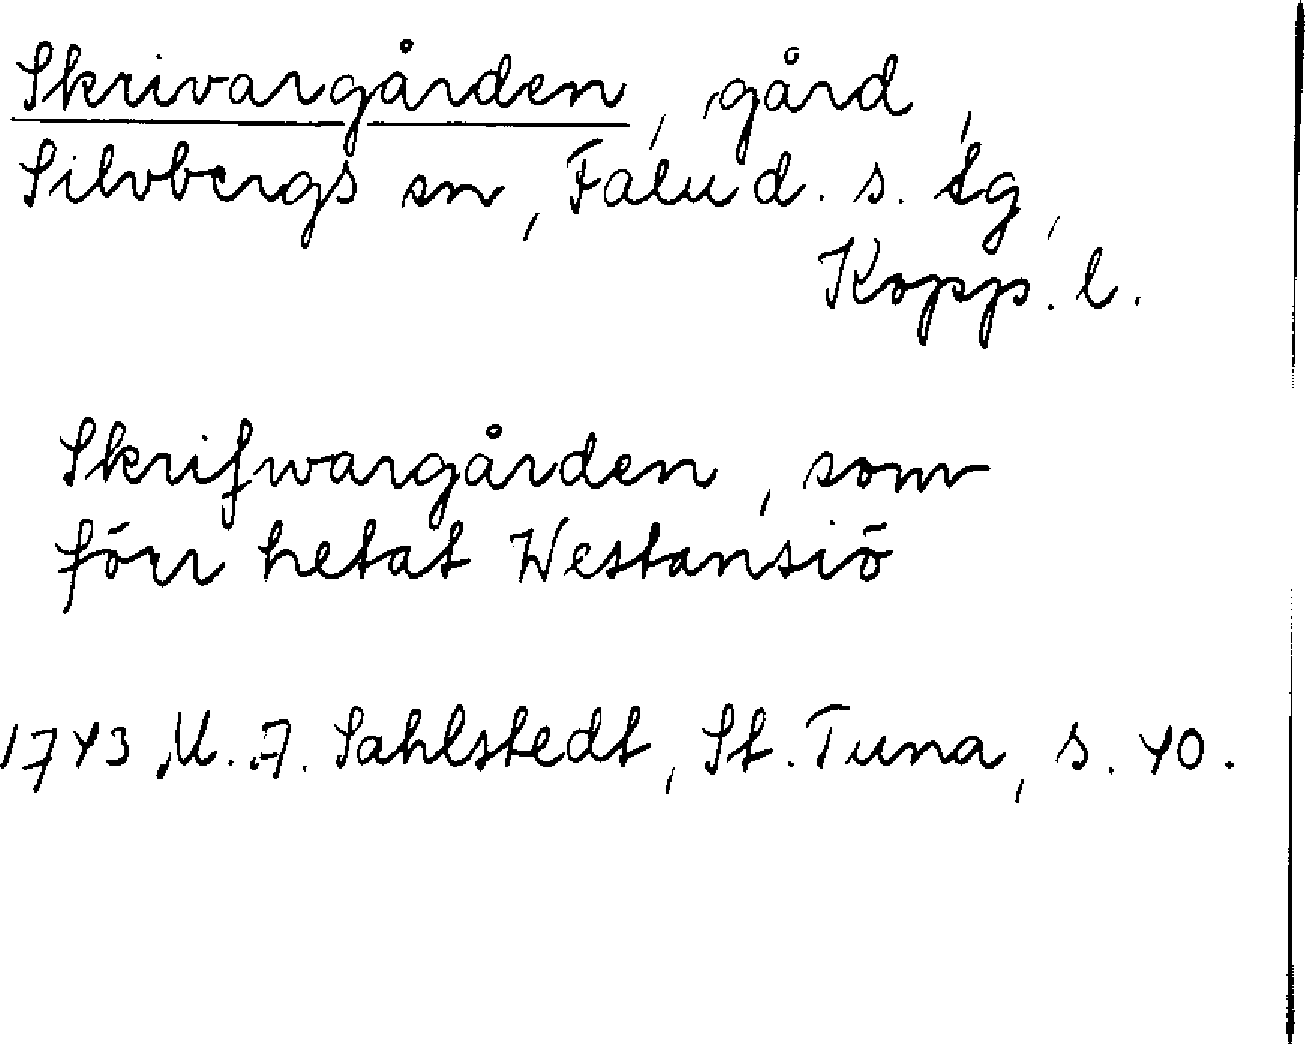 Skrivargården, gård,
Silvbergs sn, Falu d. s. tg,
Kopp. l.
Skrifwargården, som
förr hetat Westansiö
1743 M. A. Sahlstedt, St. Tuna, s. 40.